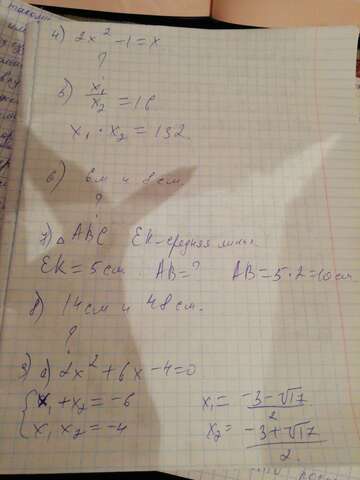 4) 2x² -1 = x
?
5) x₁/x₂ = 16
x₁ · x₂ = 132
6) 6м и 8см.
?
7) △ ABC EK - средняя линия
EK = 5см AB = ? AB = 5·2 = 10см
8) 14см и 48см.
?
9) a) 2x² + 6x - 4 = 0
x₁ + x₂ = -6 x₁ = (-3-√17)/2
x₁ x₂ = -4 x₂ = (-3+√17)/2.